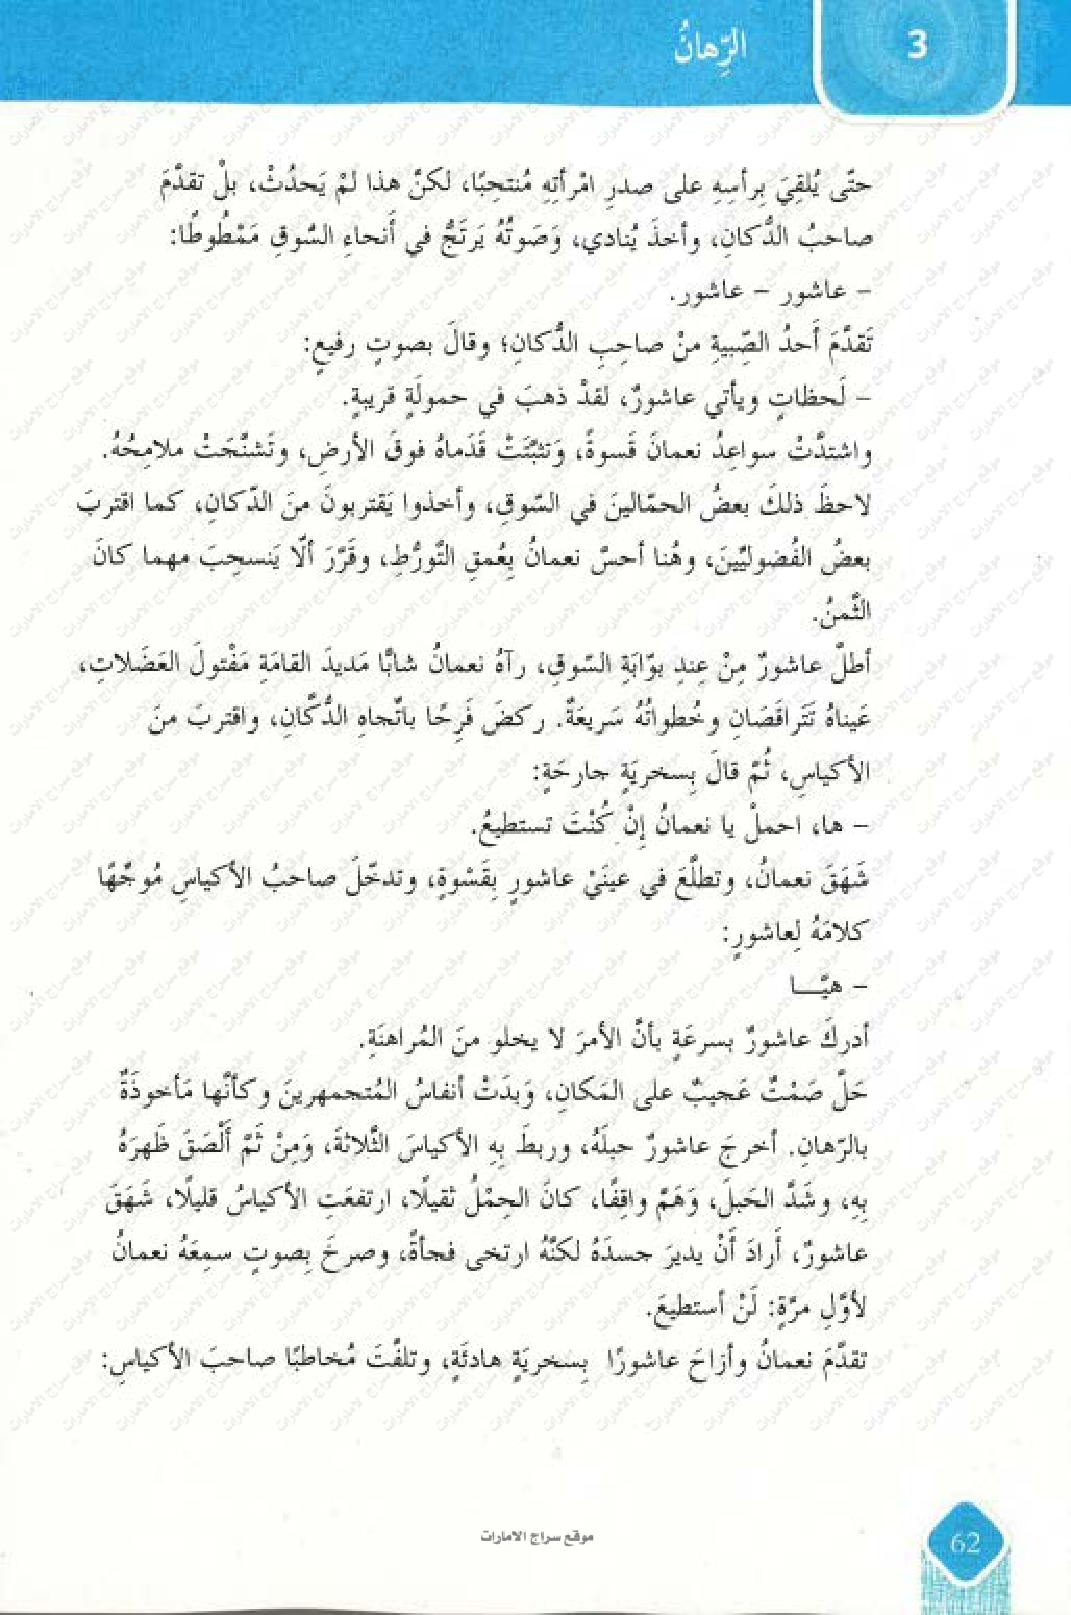 3
الرِّهانُ
حتّى يُلقِيَ بِرأسِهِ على صدرِ امْرأتِهِ مُنتحِبًا، لكنَّ هذا لمْ يَحدُثْ، بلْ تقدَّمَ
صاحبُ الدُّكانِ، وأخذَ يُنادي، وَصَوتُهُ يَرتَجُّ في أَنحاءِ السّوقِ مَمْطُوطًا:
– عاشور – عاشور.
تَقدَّمَ أَحدُ الصِّبيةِ منْ صاحِبِ الدُّكانِ؛ وقالَ بصوتٍ رفيعٍ:
– لَحظاتٍ ويأتي عاشورٌ، لقدْ ذهبَ في حمولَةٍ قريبةٍ.
واشتدَّتْ سواعِدُ نعمانَ قَسوةً، وَتثبَّتَتْ قَدَماهُ فوقَ الأرضِ، وتَشنَّجَتْ ملامِحُهُ.
لاحظَ ذلكَ بعضُ الحمّالينَ في السّوقِ، وأخذوا يَقتربونَ منَ الدّكانِ، كما اقتربَ
بعضُ الفُضوليّينَ، وهُنا أحسَّ نعمانُ بِعُمقِ التَّورُّطِ، وقَرَّرَ ألّا يَنسحِبَ مهما كانَ
الثَّمنُ.
أطلَّ عاشورٌ مِنْ عِندِ بوّابَةِ السّوقِ، رآهُ نعمانُ شابًّا مَديدَ القامَةِ مَفْتولَ العَضَلاتِ،
عَيناهُ تَتَراقَصَانِ وخُطواتُهُ سَريعَةٌ. ركضَ فَرِحًا باتّجاهِ الدُّكّانِ، واقتربَ منَ
الأكياسِ، ثُمّ قالَ بِسخريَةٍ جارحَةٍ:
– ها، احملْ يا نعمانُ إنْ كُنْتَ تستطيعُ.
شَهَقَ نعمانُ، وتطلَّعَ في عينَيْ عاشورٍ بِقَسْوةٍ، وتدخّلَ صاحبُ الأكياسِ مُوجِّهًا
كلامَهُ لِعاشورٍ:
– هيّـــا
أدركَ عاشورٌ بسرعَةٍ بأنَّ الأمرَ لا يخلو منَ المُراهنَةِ.
حَلَّ صَمْتٌ عَجيبٌ على المَكانِ، وَبدَتْ أنفاسُ المُتجمهرينَ وكأنَّها مَأخوذَةٌ
بالرّهانِ. أخرجَ عاشورٌ حبلَهُ، وربطَ بِهِ الأكياسَ الثَّلاثةَ، وَمِنْ ثَمَّ أَلْصَقَ ظَهرَهُ
بِهِ، وشَدَّ الحَبلَ، وَهَمَّ واقِفًا، كانَ الحِمْلُ ثقيلًا، ارتفعَتِ الأكياسُ قليلًا، شَهَقَ
عاشورٌ، أَرادَ أَنْ يديرَ جسدَهُ لكنَّهُ ارتخى فجأةً، وصرخَ بِصوتٍ سمِعَهُ نعمانُ
لأوَّلِ مرّةٍ: لَنْ أستطيعَ.
تقدَّمَ نعمانُ وأزاحَ عاشورًا بِسخريَةٍ هادئَةٍ، وتلفَّتَ مُخاطبًا صاحبَ الأكياسِ:
موقع سراج الامارات
62